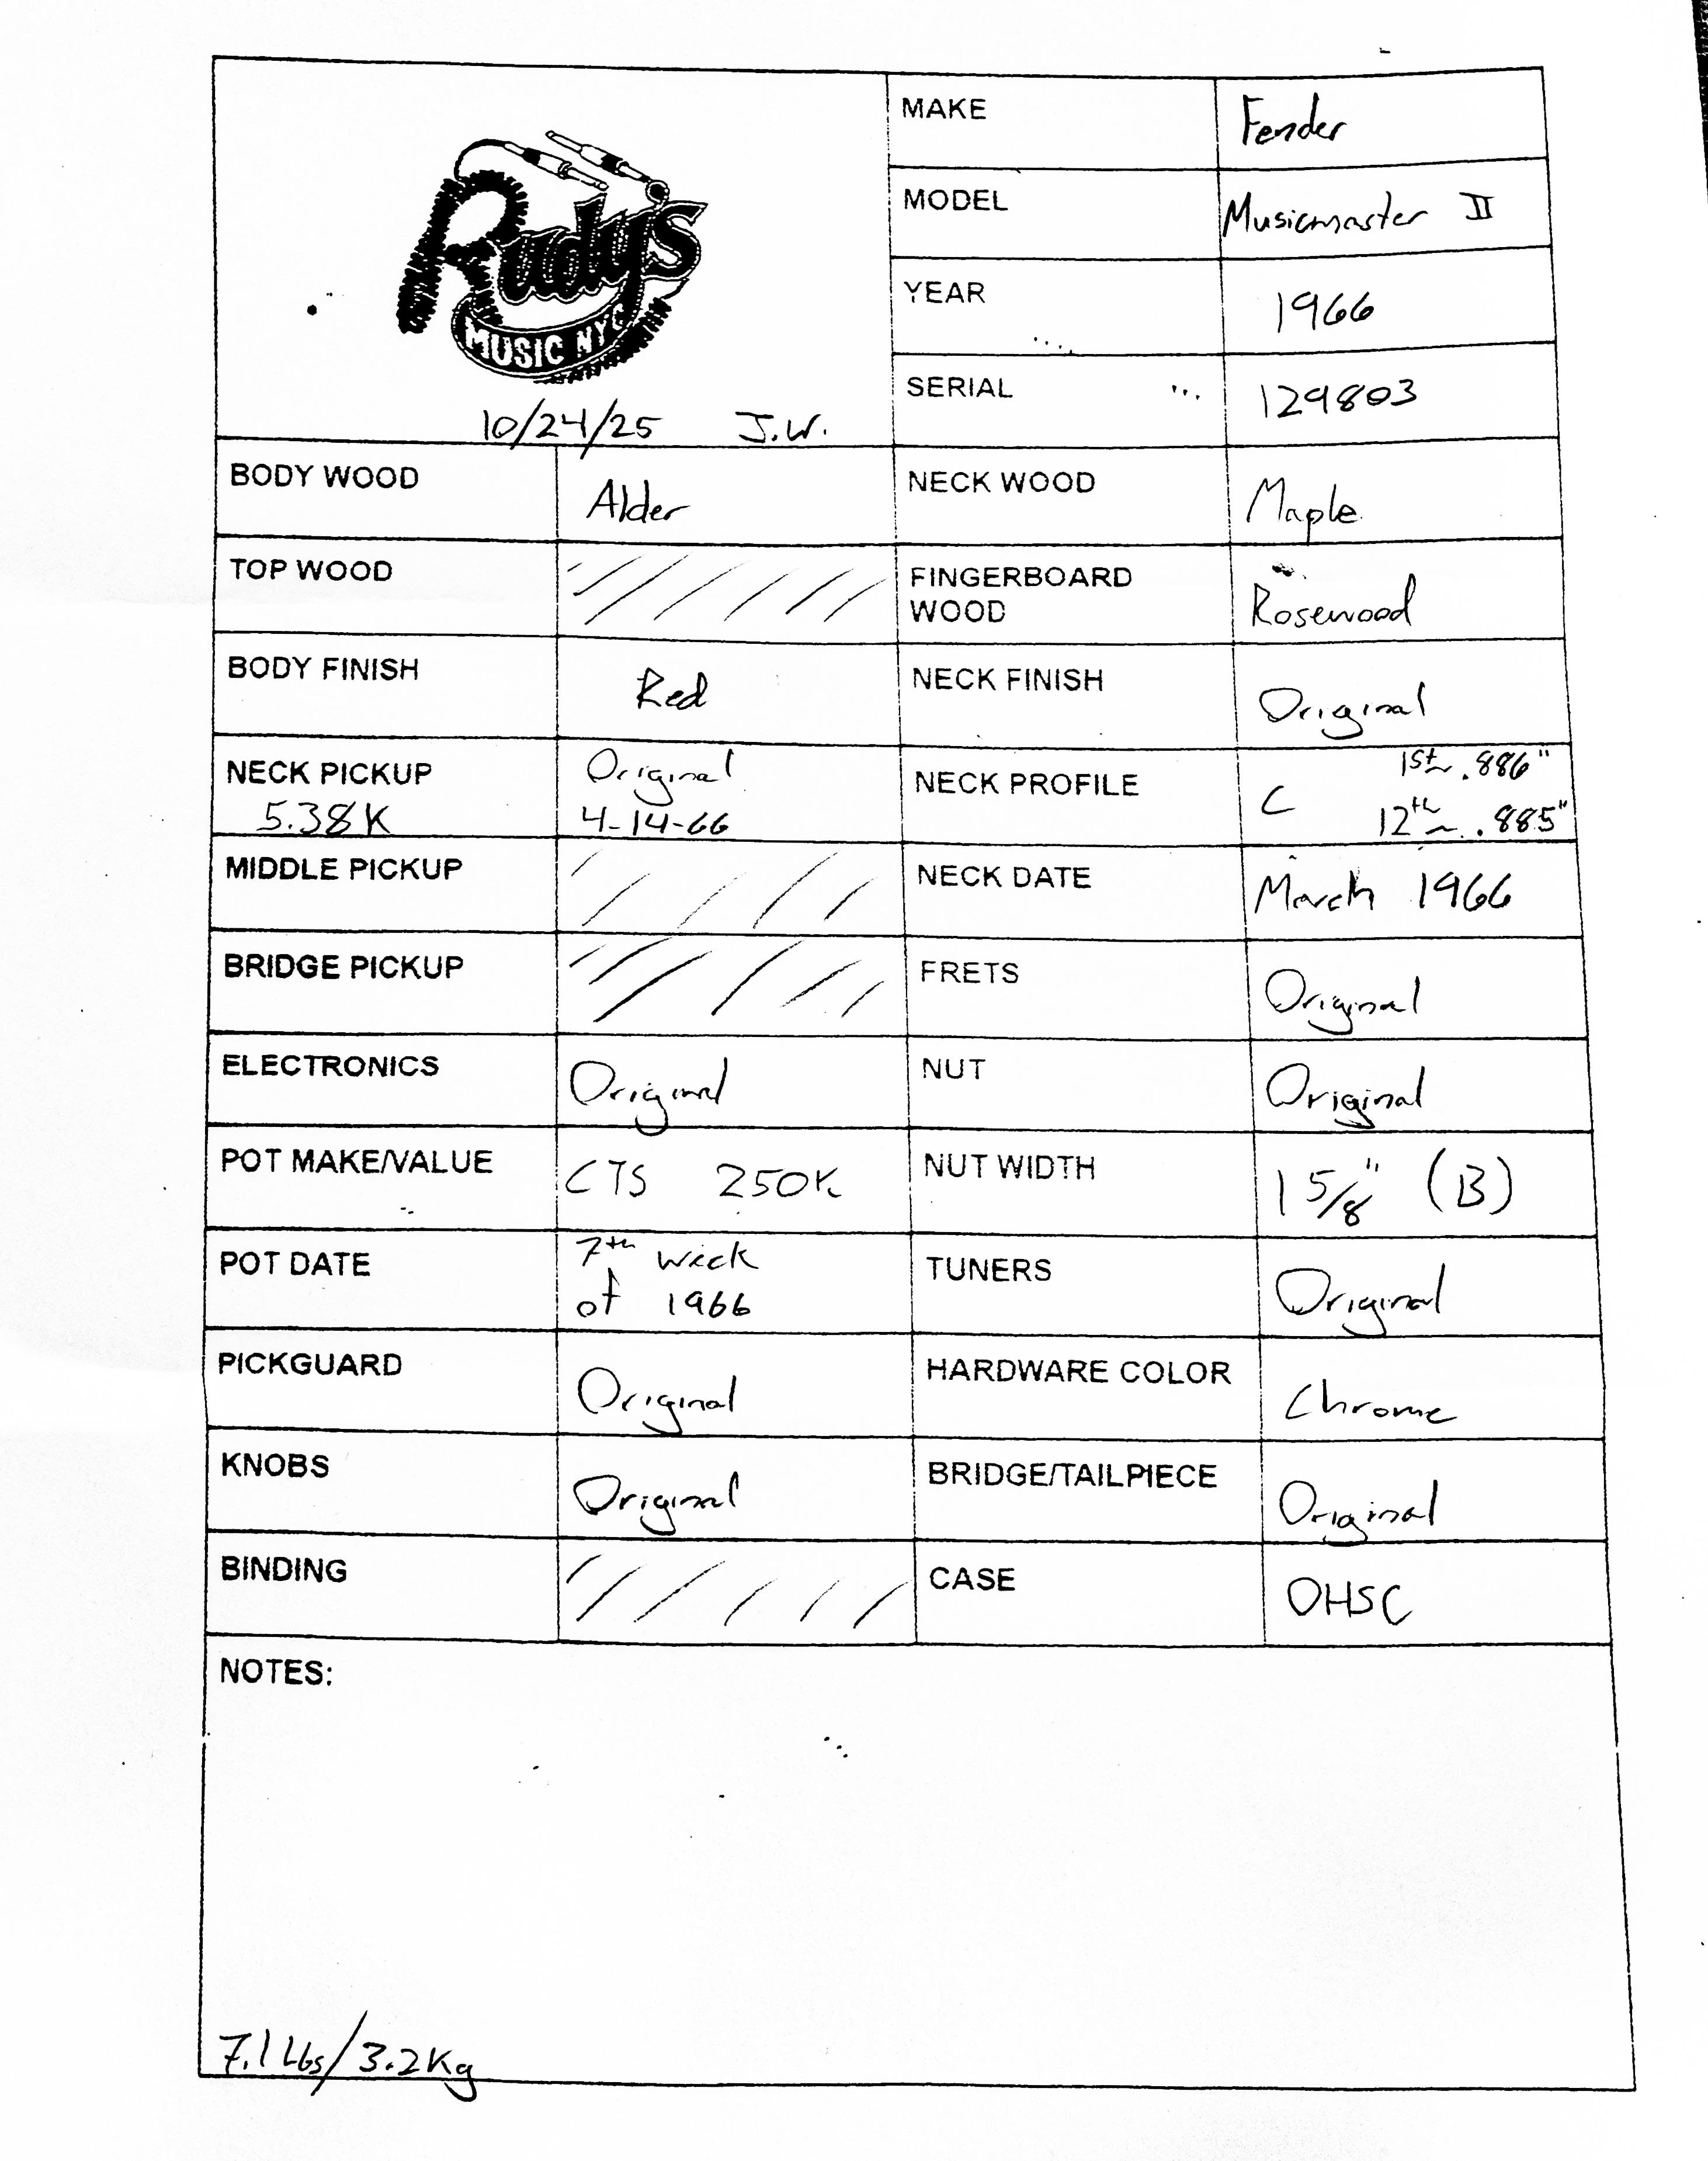 Rudy's
MUSIC NYC
10/24/25 J.W.
MAKE Fender
MODEL Musicmaster II
YEAR 1966
SERIAL 129803
BODY WOOD Alder NECK WOOD Maple
TOP WOOD FINGERBOARD
WOOD Rosewood
BODY FINISH Red NECK FINISH Original
NECK PICKUP Original NECK PROFILE C 1st ~ .886"
5.38K 4-14-66 12th ~ .885"
MIDDLE PICKUP NECK DATE March 1966
BRIDGE PICKUP FRETS Original
ELECTRONICS Original NUT Original
POT MAKE/VALUE CTS 250K NUT WIDTH 1 5/8" (B)
POT DATE 7th week TUNERS Original
of 1966
PICKGUARD Original HARDWARE COLOR Chrome
KNOBS Original BRIDGE/TAILPIECE Original
BINDING CASE OHSC
NOTES:
7.1 Lbs/3.2Kg